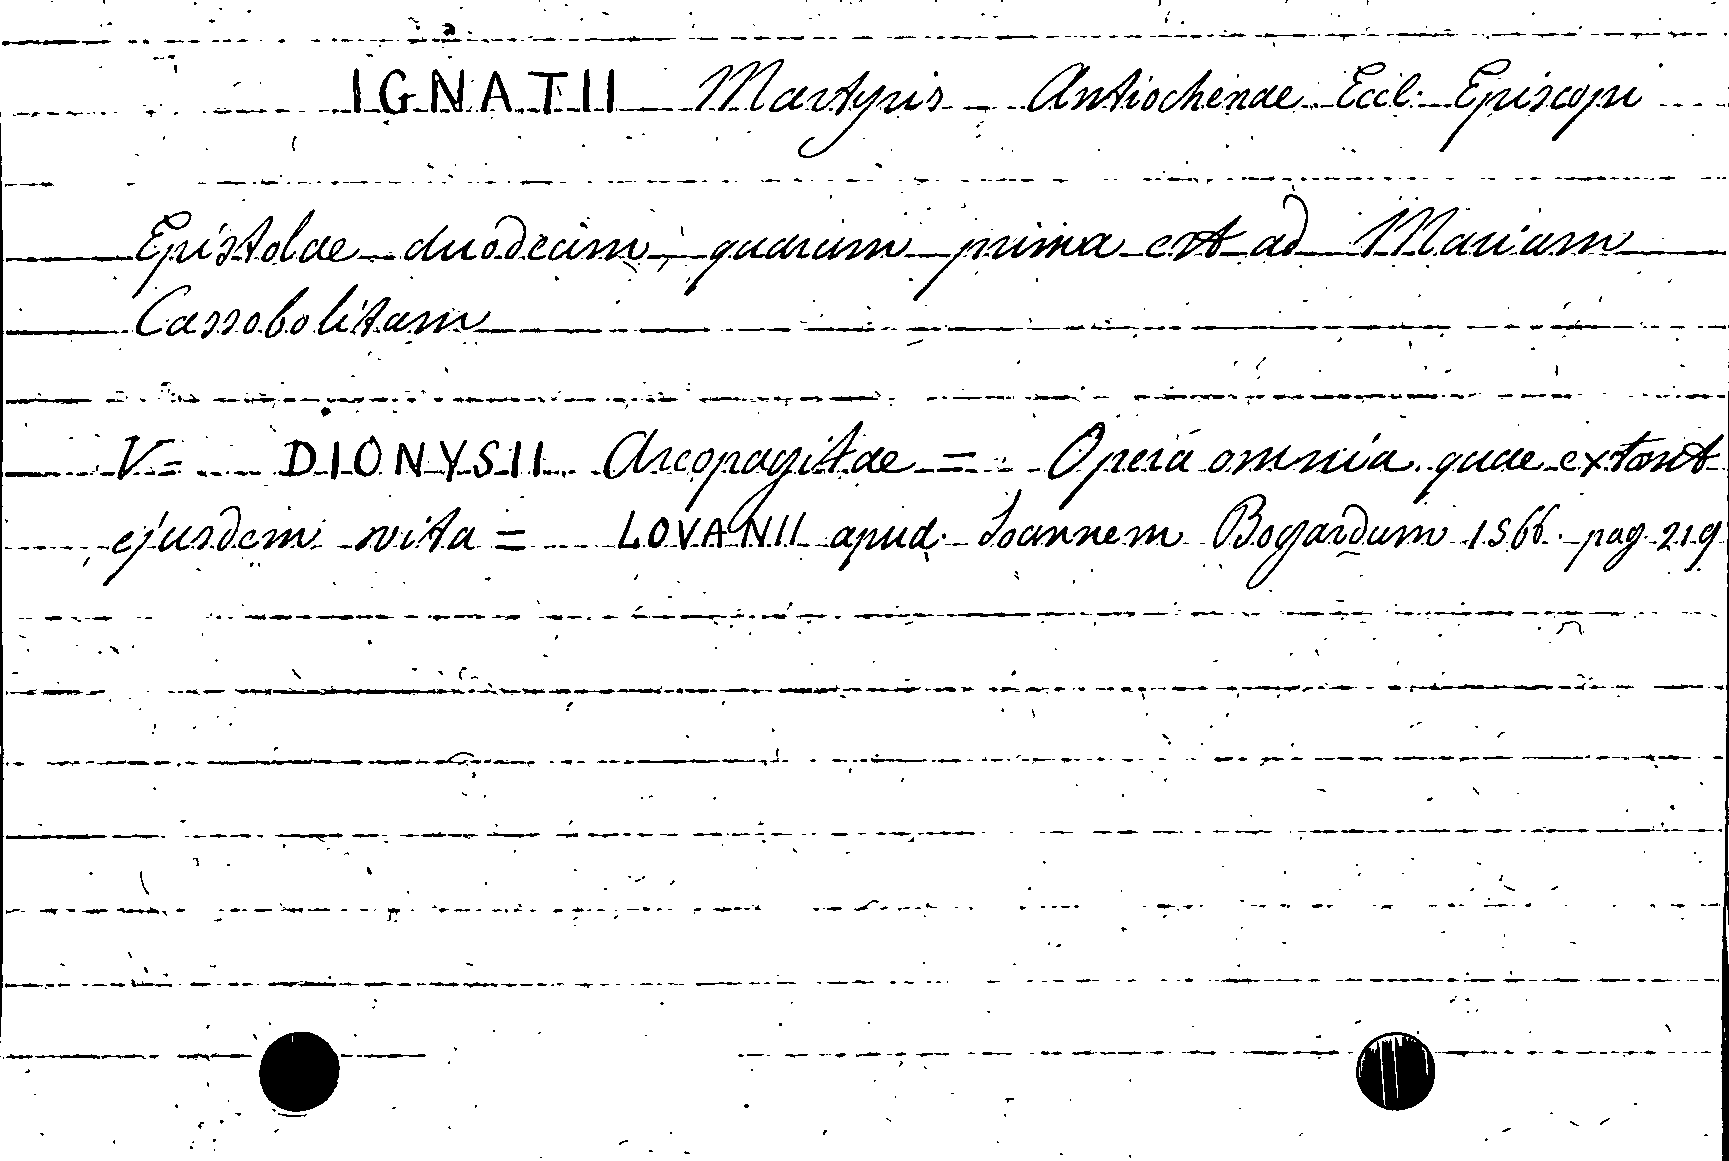 IGNATII Martyris Antiochenae Eccl. Episcopi
Epistolae duodecim, quarum prima est ad Mariam
Cassobolitam
V= DIONYSII Areopagitae = Opera omnia quae extant
ejusdem vita = LOVANII apud Joannem Bogardum 1566. pag. 219